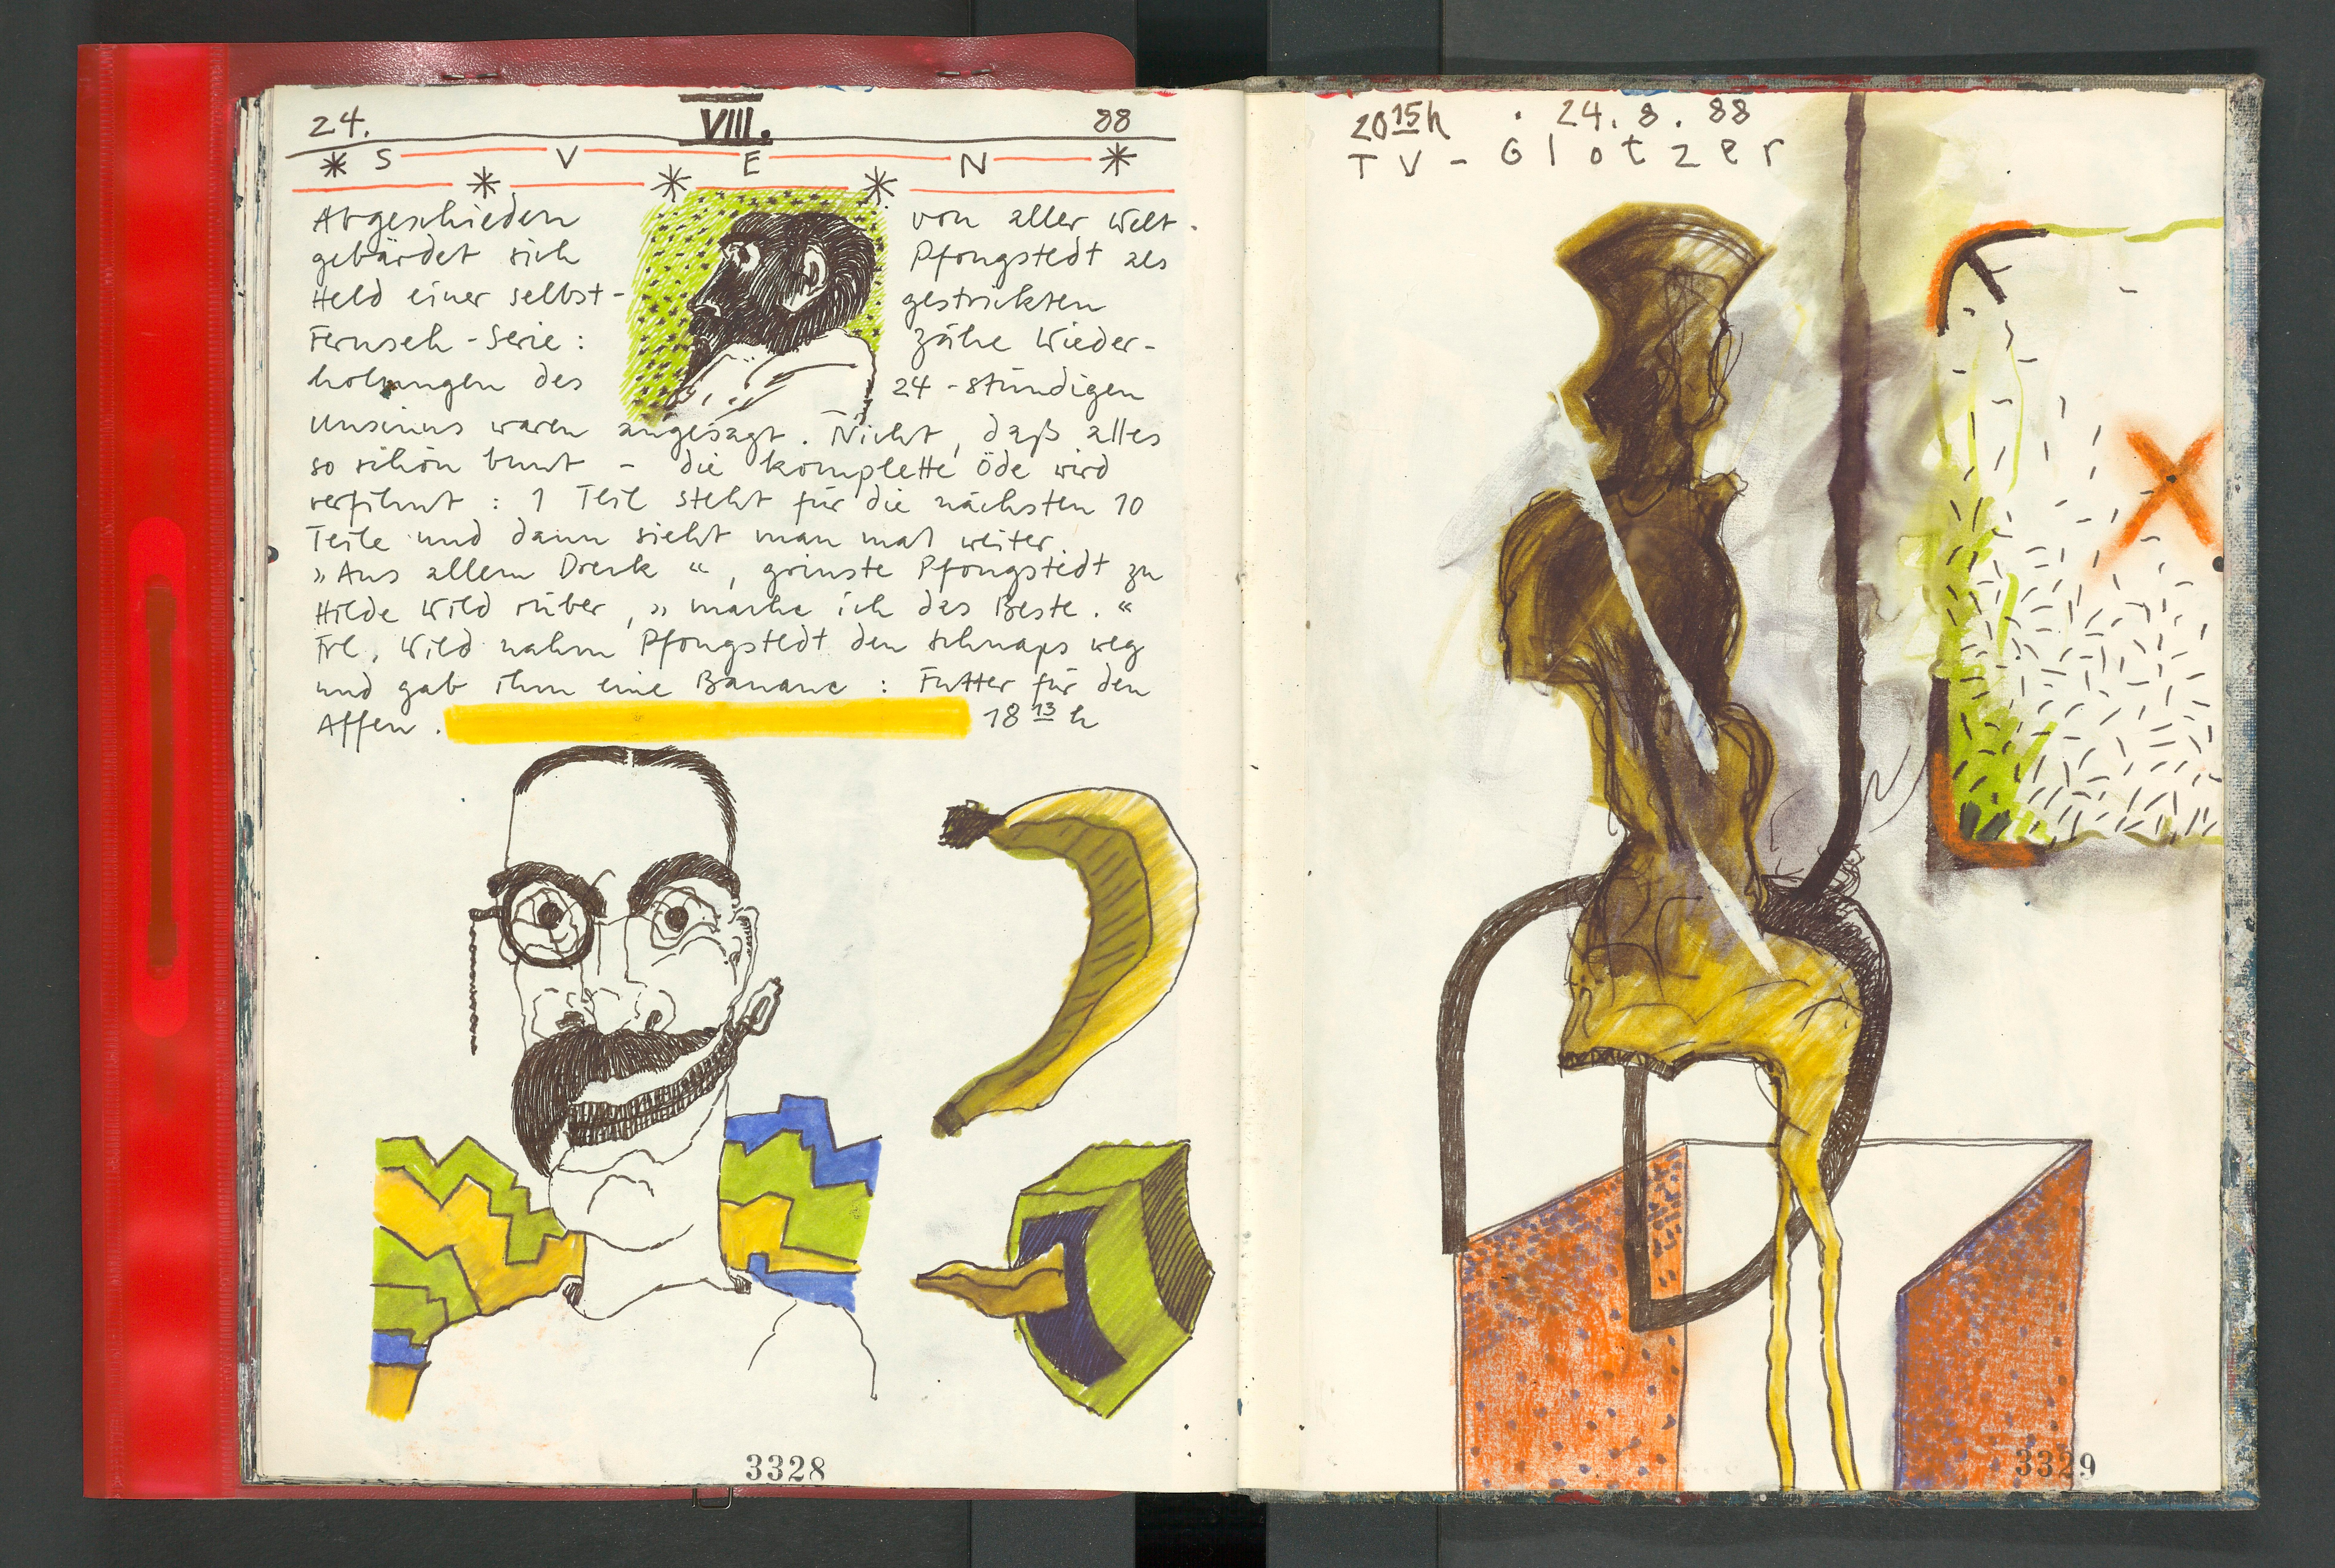 24. VIII. 88
* S V E N *
* * *
Abgeschieden von aller Welt.
gebärdet sich Pfongstedt als
Held einer selbst- gestrickten
Fernseh-Serie: Zähe Wieder-
holungen des 24-stündigen
Unsinns waren angesagt. Nicht, daß alles
so schön bunt – die komplette Öde wird
verfilmt: 1 Teil steht für die nächsten 10
Teile und dann sieht man mal weiter.
»Aus allem Dreck«, grinste Pfongstedt zu
Hilde Wild rüber, »mache ich das Beste.«
Frl. Wild nahm Pfongstedt den Schnaps weg
und gab ihm eine Banane: Futter für den
Affen. 18 13 h
3328
20 15 h . 24. 8. 88
TV-Glotzer
3329